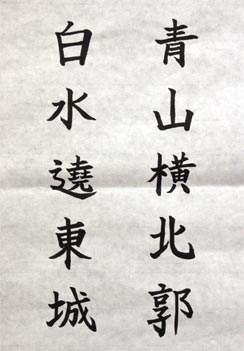 青山横北郭
白水遶東城